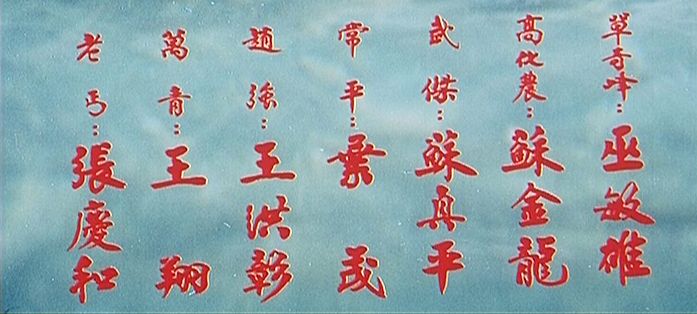 草奇峰：巫敏雄
高農：蘇金龍
武傑：蘇真平
常平：茂
趙強：王洪彰
萬青：王翔
老丐：張慶和